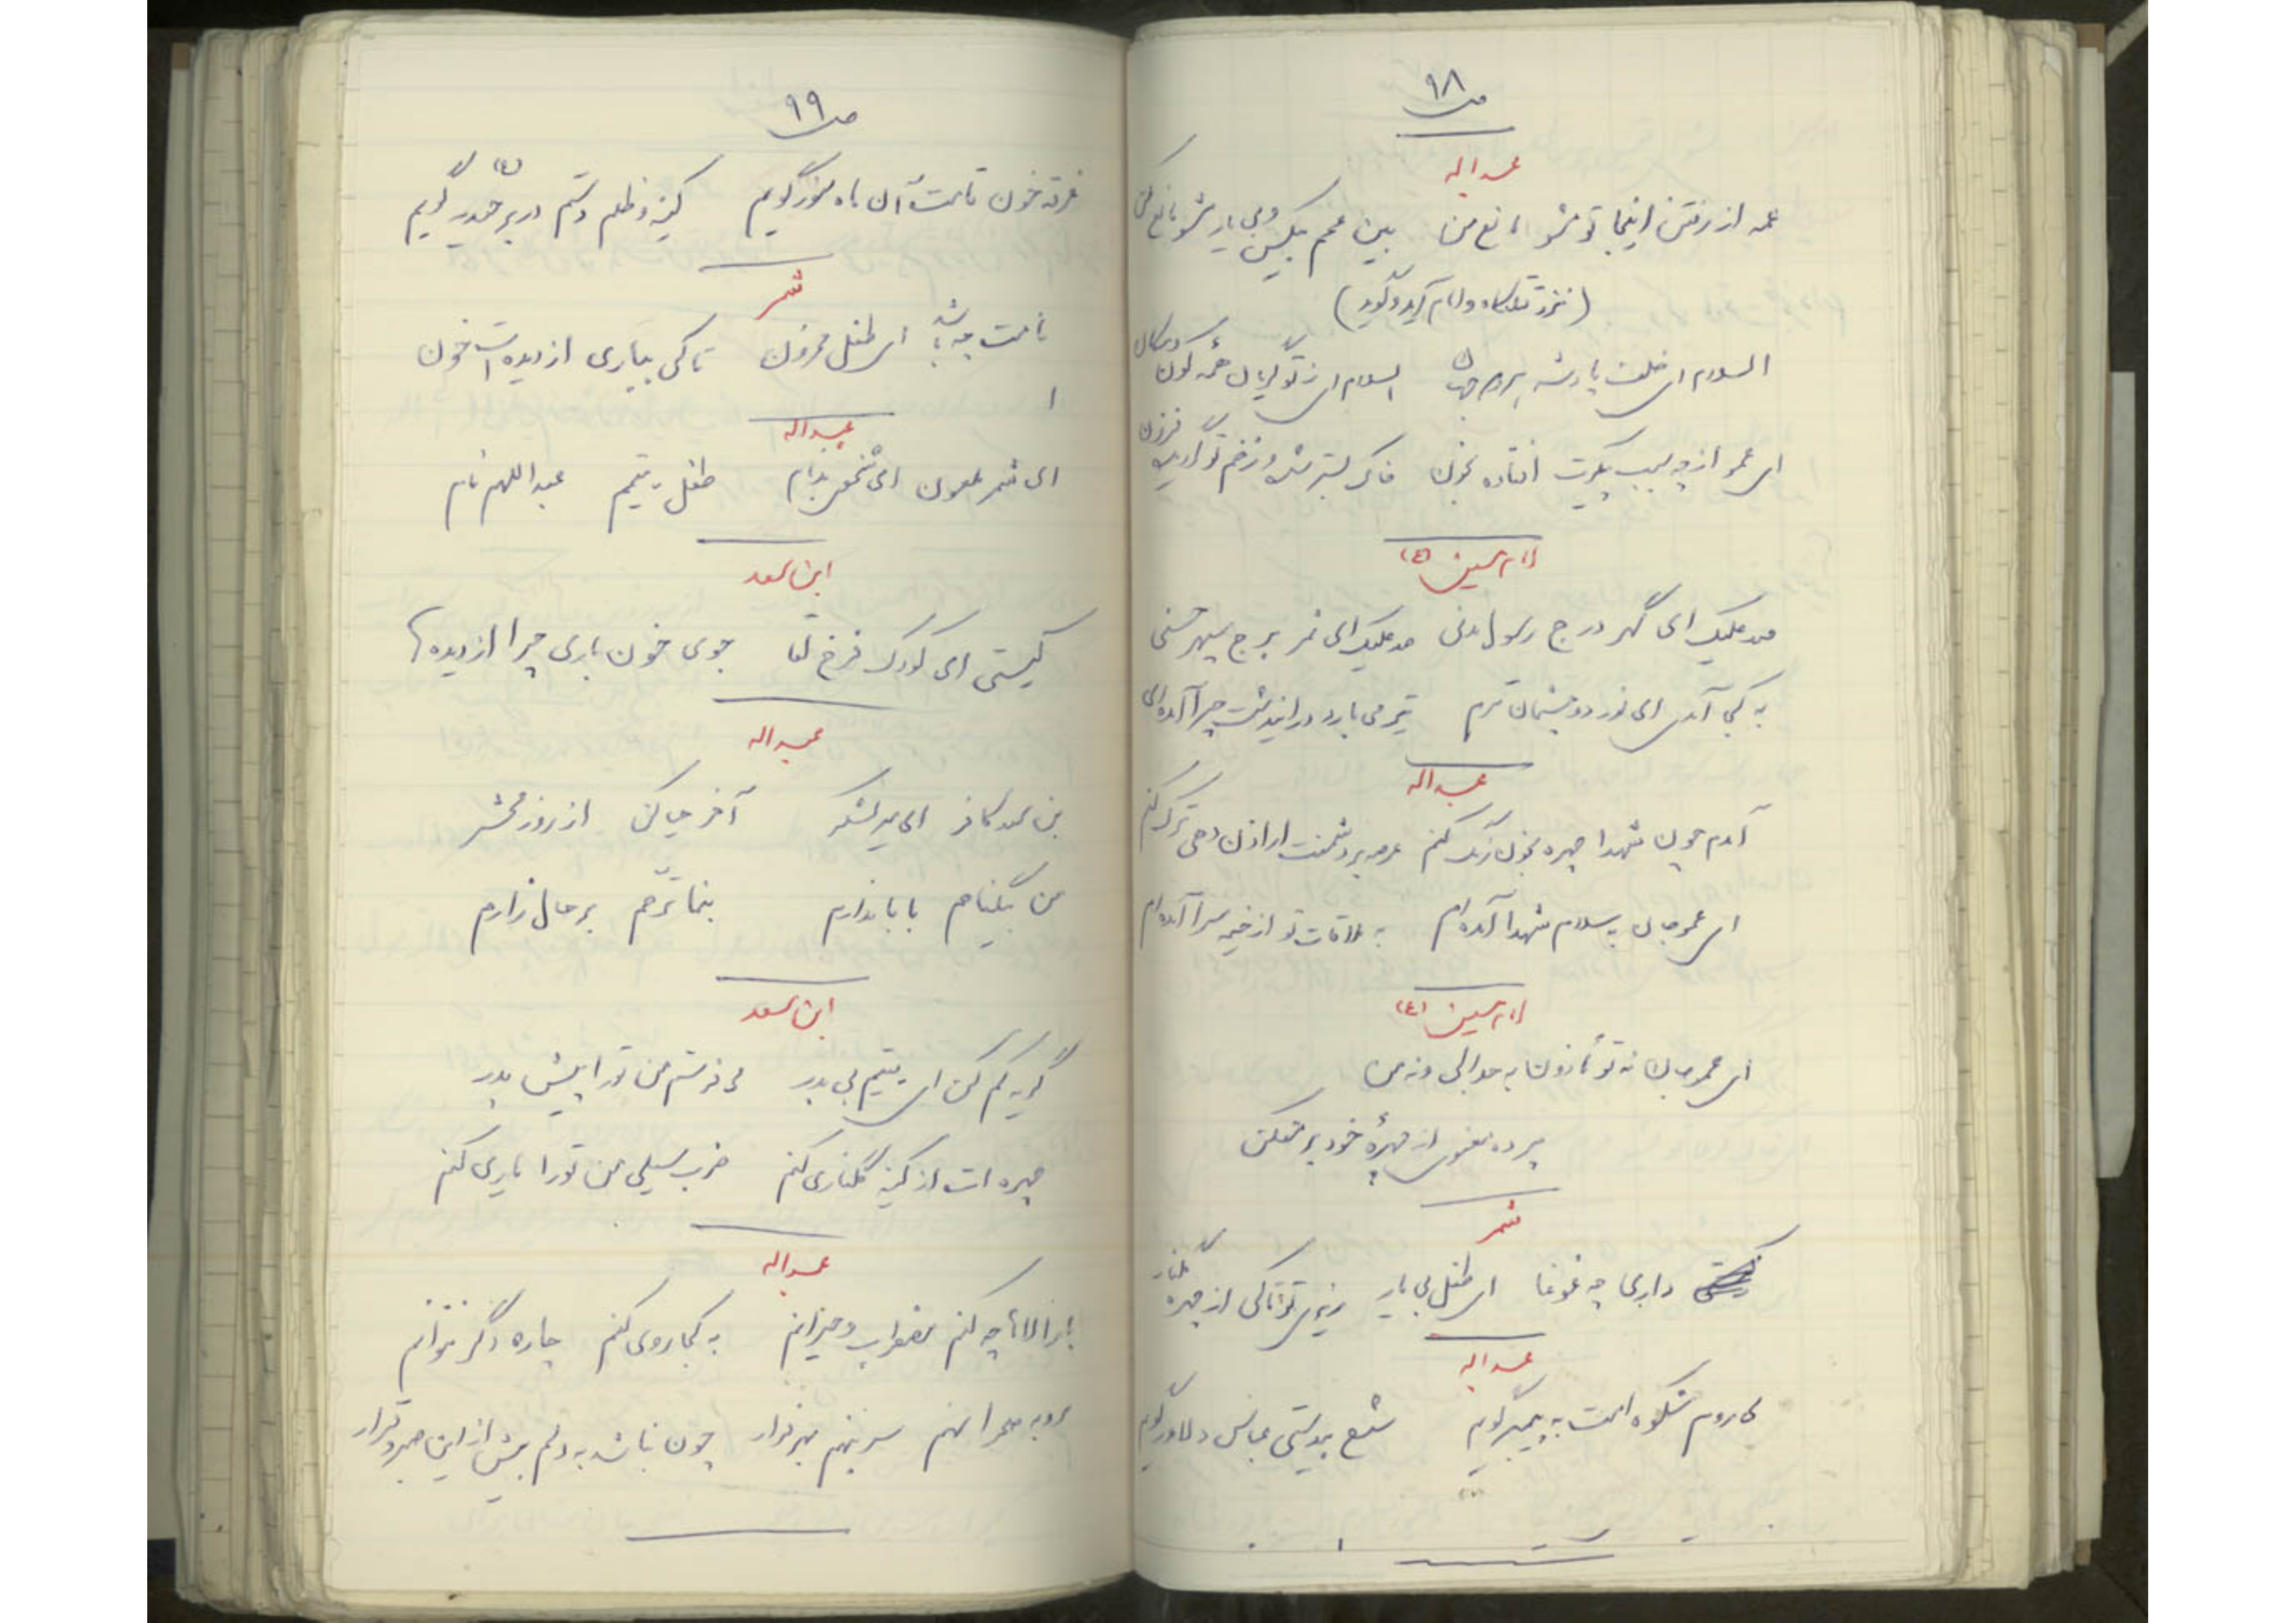 ص ۹۸
عبداله
عمه از رفتن اینجا تو مشو مانع من بین عمم بیکس و بی یار مشو مانع من
(نزد قتلگاه و امام آید و گوید)
السلام ای خلف پادشه السلام ای ز تو گریان همه کون و مکان
ای عمو از چه سبب پیکرت افتاده بخون خاک بستر شده و زخم تو فزون
امام حسین (ع)
صد علیک ای گهر درج رسول مدنی صد علیک ای قمر برج سپهر حسنی
به کجا آمدی ای نور دو چشمان ترم تیر می بارد در ایندشت چرا آمده ای
عبداله
آمدم چون شهدا چهره بخون رنگ کنم عرصه بر دشمنت ار اذن دهی تنگ کنم
ای عمو جان به سلام شهدا آمده ام به ملاقات تو از خیمه سرا آمده ام
امام حسین (ع)
ای عمو جان نه تو مأذون به جدالی و نه من
پرده معنوی از چهرهٔ خود بر مفکن
شمر
داری چه غوغا ای طفل بی یار ریزی تو تا کی از چهره گلنار
عبداله
می روم شکوه امت به پیمبر گویم شمع بیدستی عباس دلاور گویم
ص ۹۹
غرقه خون قامت آن ماه منور گویم کینه و ظلم و ستم در بر حیدر گویم
شمر
نامت چه باشد ای طفل محزون تا کی بباری از دیده ات خون
عبداله
ای شمر ملعون ای شخص بدنام طفل یتیم عبداللهم نام
ابن سعد
کیستی ای کودک فرخ لقا جوی خون باری چرا از دیده ها
عبداله
بن سعد کافر ای میر لشکر آخر حیا کن از روز محشر
من بیگناهم بابا ندارم بنما ترحم بر حال زارم
ابن سعد
گریه کم کن ای یتیم بی پدر می فرستم من تو را پیش پدر
چهره ات از کینه گلناری کنم ضرب سیلی من تو را یاری کنم
عبداله
بار الاها چه کنم مضطرب و حیرانم به کجا روی کنم چاره دگر نتوانم
رو به صحرا نهم سر بنهم بهر فرار چون نباشد به دلم بیش از این صبر و قرار